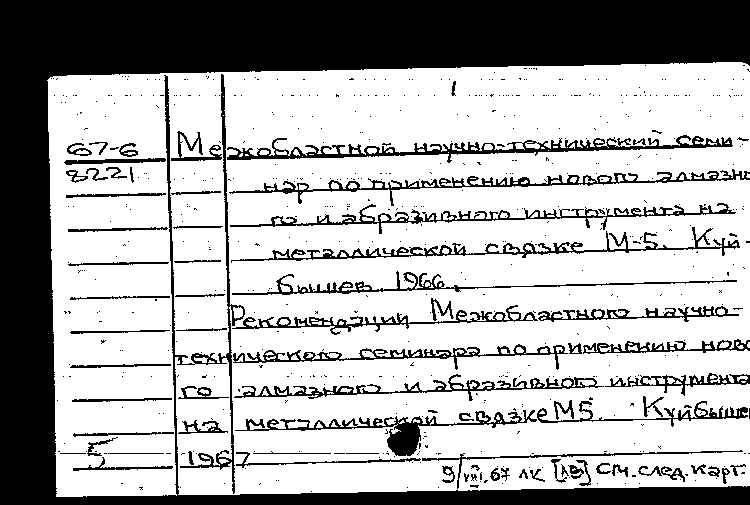 1
67-6 Межобластной научно-технический семи-
8221 нар по применению нового алмазно
го и абразивного инструмента на
металлической связке М-5. Куй-
бышев. 1966.
Рекомендации Межобластного научно-
технического семинара по применению ново
го алмазного и абразивного инструмента
на металлической связке М5. Куйбышев
5 1967
9/VIII.67 ЛК [ЛВ] См. след. карт.